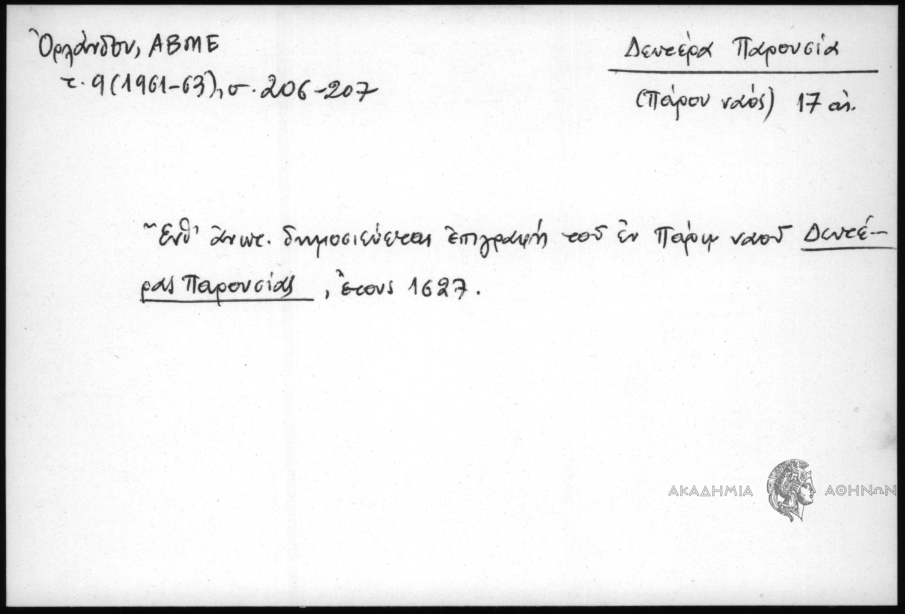 Ὀρλάνδου, ΑΒΜΕ
τ. 9 (1961-63), σ. 206-207
Δευτέρα Παρουσία
(Πάρου ναός) 17 αἰ.
Ἔνθ' ἀνωτ. δημοσιεύεται ἐπιγραφή τοῦ ἐν Πάρῳ ναοῦ Δευτέ-
ρας Παρουσίας, ἔτους 1627.
ΑΚΑΔΗΜΙΑ ΑΘΗΝΩΝ